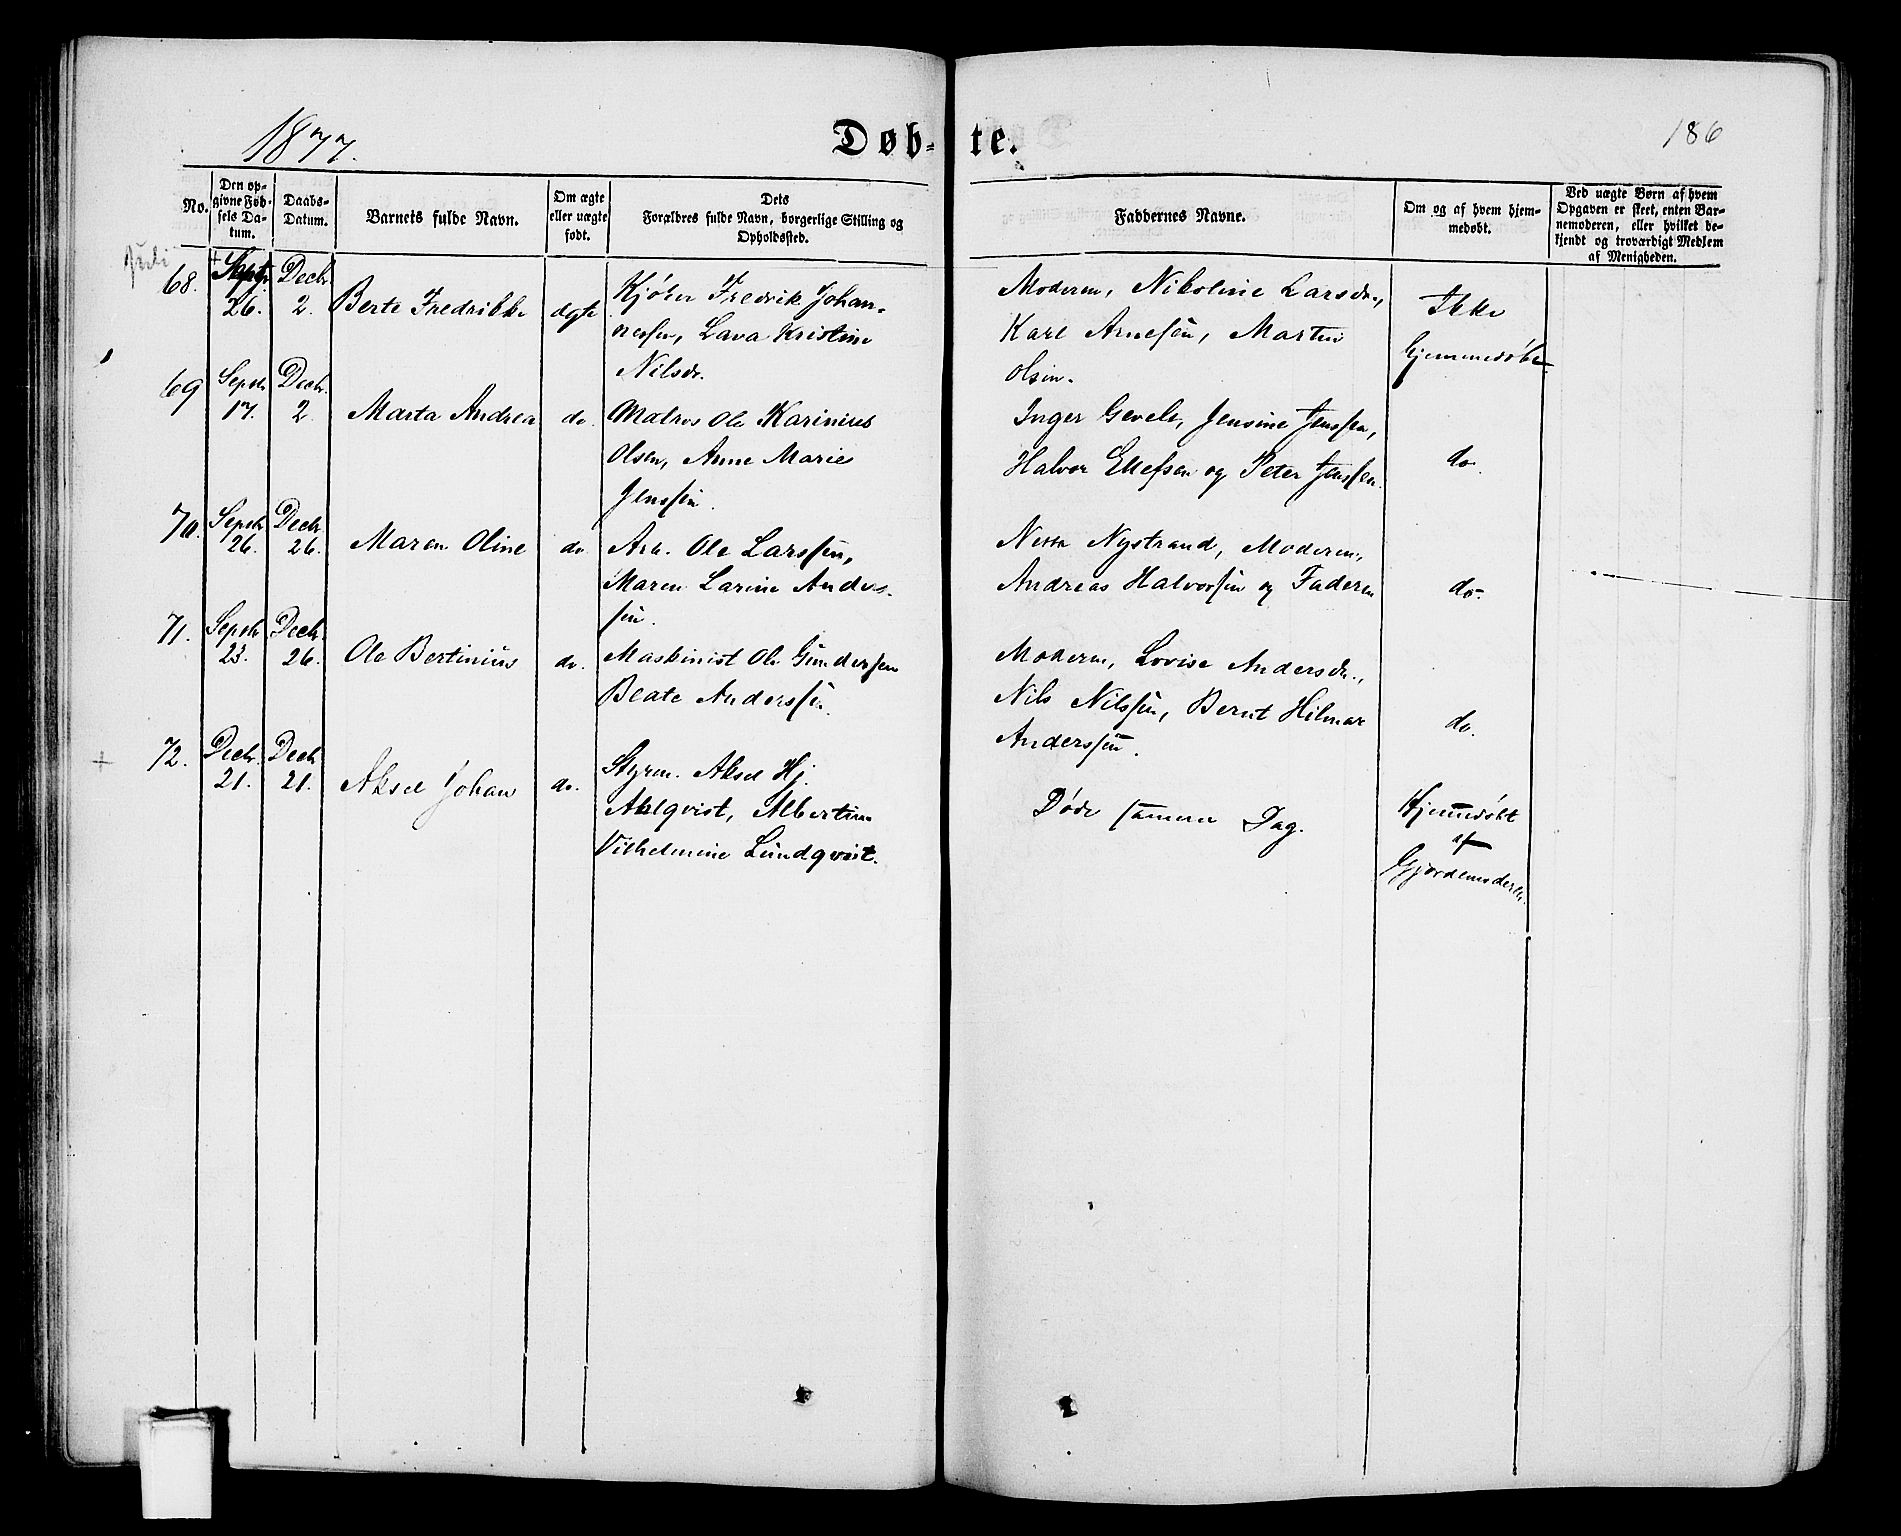 1877.
Døb-te.
186
No.
Den op-
givne Fød-
sels Da-
tum.
Daabs-
Datum.
Barnets fulde Navn.
Om ægte
eller uægte
født.
Dets
Forældres fulde Navn, borgerlige Stilling og
Opholdssted.
Faddernes Navne.
Om og af hvem hjem-
medøbt.
Ved uægte Børn af hvem
Opgaven er skeet, enten Bar-
nemoderen, eller hvilket be-
kjendt og troværdigt Medlem
af Menigheden.
Juli
68.
Septr
26.
Decbr
2.
Berte Fredrikke
ægte
Kjører Fredrik Johan-
nessen, Lava Kristine
Nilsdr.
Moderen, Nikoline Larsdr.,
Karl Arnesen, Martin
Olsen.
Ikke
hjemmedøbt
69
Septr
17.
Decbr
2.
Marta Andrea
do.
Matros Ole Karinius
Olsen, Anne Marie
Jenssen.
Inger Gevelt, Jensine Jenssen,
Halvor Ellefsen og Peter Jenssen.
do.
70.
Septr
26.
Decbr
26.
Maren Oline
do.
Arb. Ole Larssen,
Maren Larine Anders-
sen.
Nystrand, Moderen,
Andreas Halvorsen og Faderen
do.
71.
Septr
23.
Decbr.
26.
Ole Bertinius
do.
Maskinist Ole Gundersen
Beate Anderssen.
Moderen, Lovise Andersdr.,
Nils Nilssen, Bernt Hilmar
Anderssen.
do.
72.
Decbr.
21.
Decbr
21.
Aksel Johan
do.
Styrm. Aksel Hj.
Ahlqvist, Albertine
Vilhelmine Lundqvist.
Døde samme Dag.
Hjemmedøbt
af
Gjordemoderen.